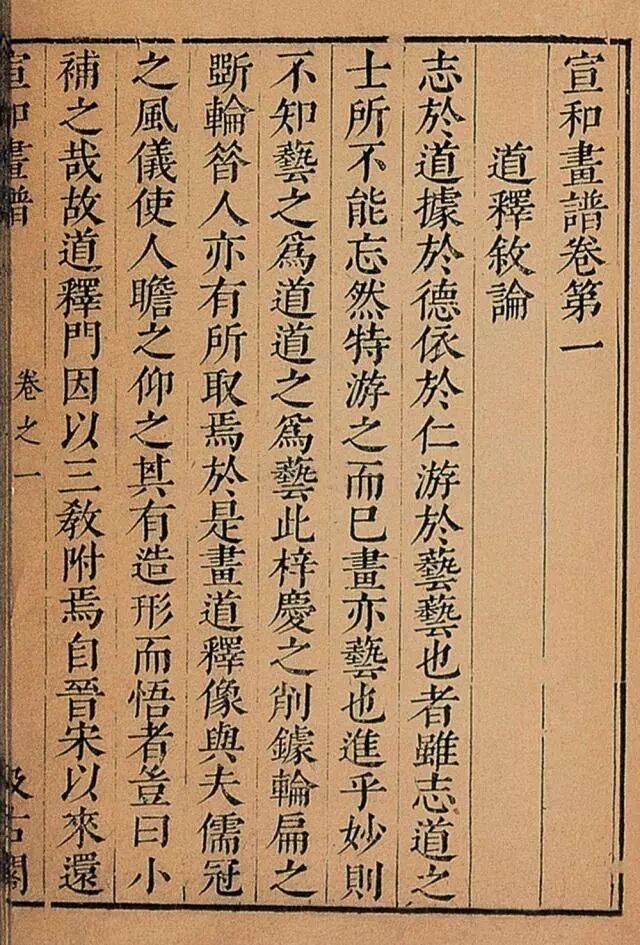 宣和畫譜卷第一
道釋敘論
志於道據於德依於仁游於藝藝也者雖志道之
士所不能忘然特游之而已畫亦藝也進乎妙則
不知藝之爲道道之爲藝此梓慶之削鐻輪扁之
斲輪昝人亦有所取焉於是畫道釋像與夫儒冠
之風儀使人瞻之仰之其有造形而悟者豈曰小
補之哉故道釋門因以三敎附焉自晉宋以來還
宣和畫譜
卷之一
汲古閣